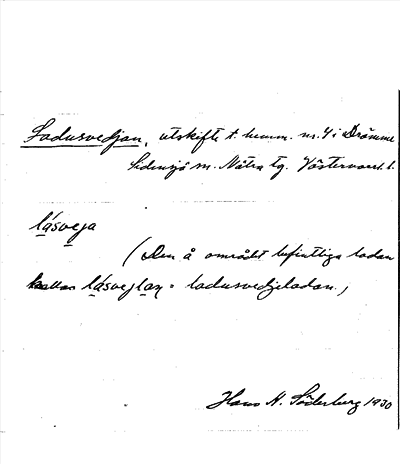 Ladusvedjan, utskifte t. hemm. nr. 4 i Drömme
Sidensjö sn. Nätra tg. Västernorrl. l.
lásveja
(Den å området befintliga ladan
kallas lásvejlan = ladusvedjeladan.)
Hans N. Söderberg 1930